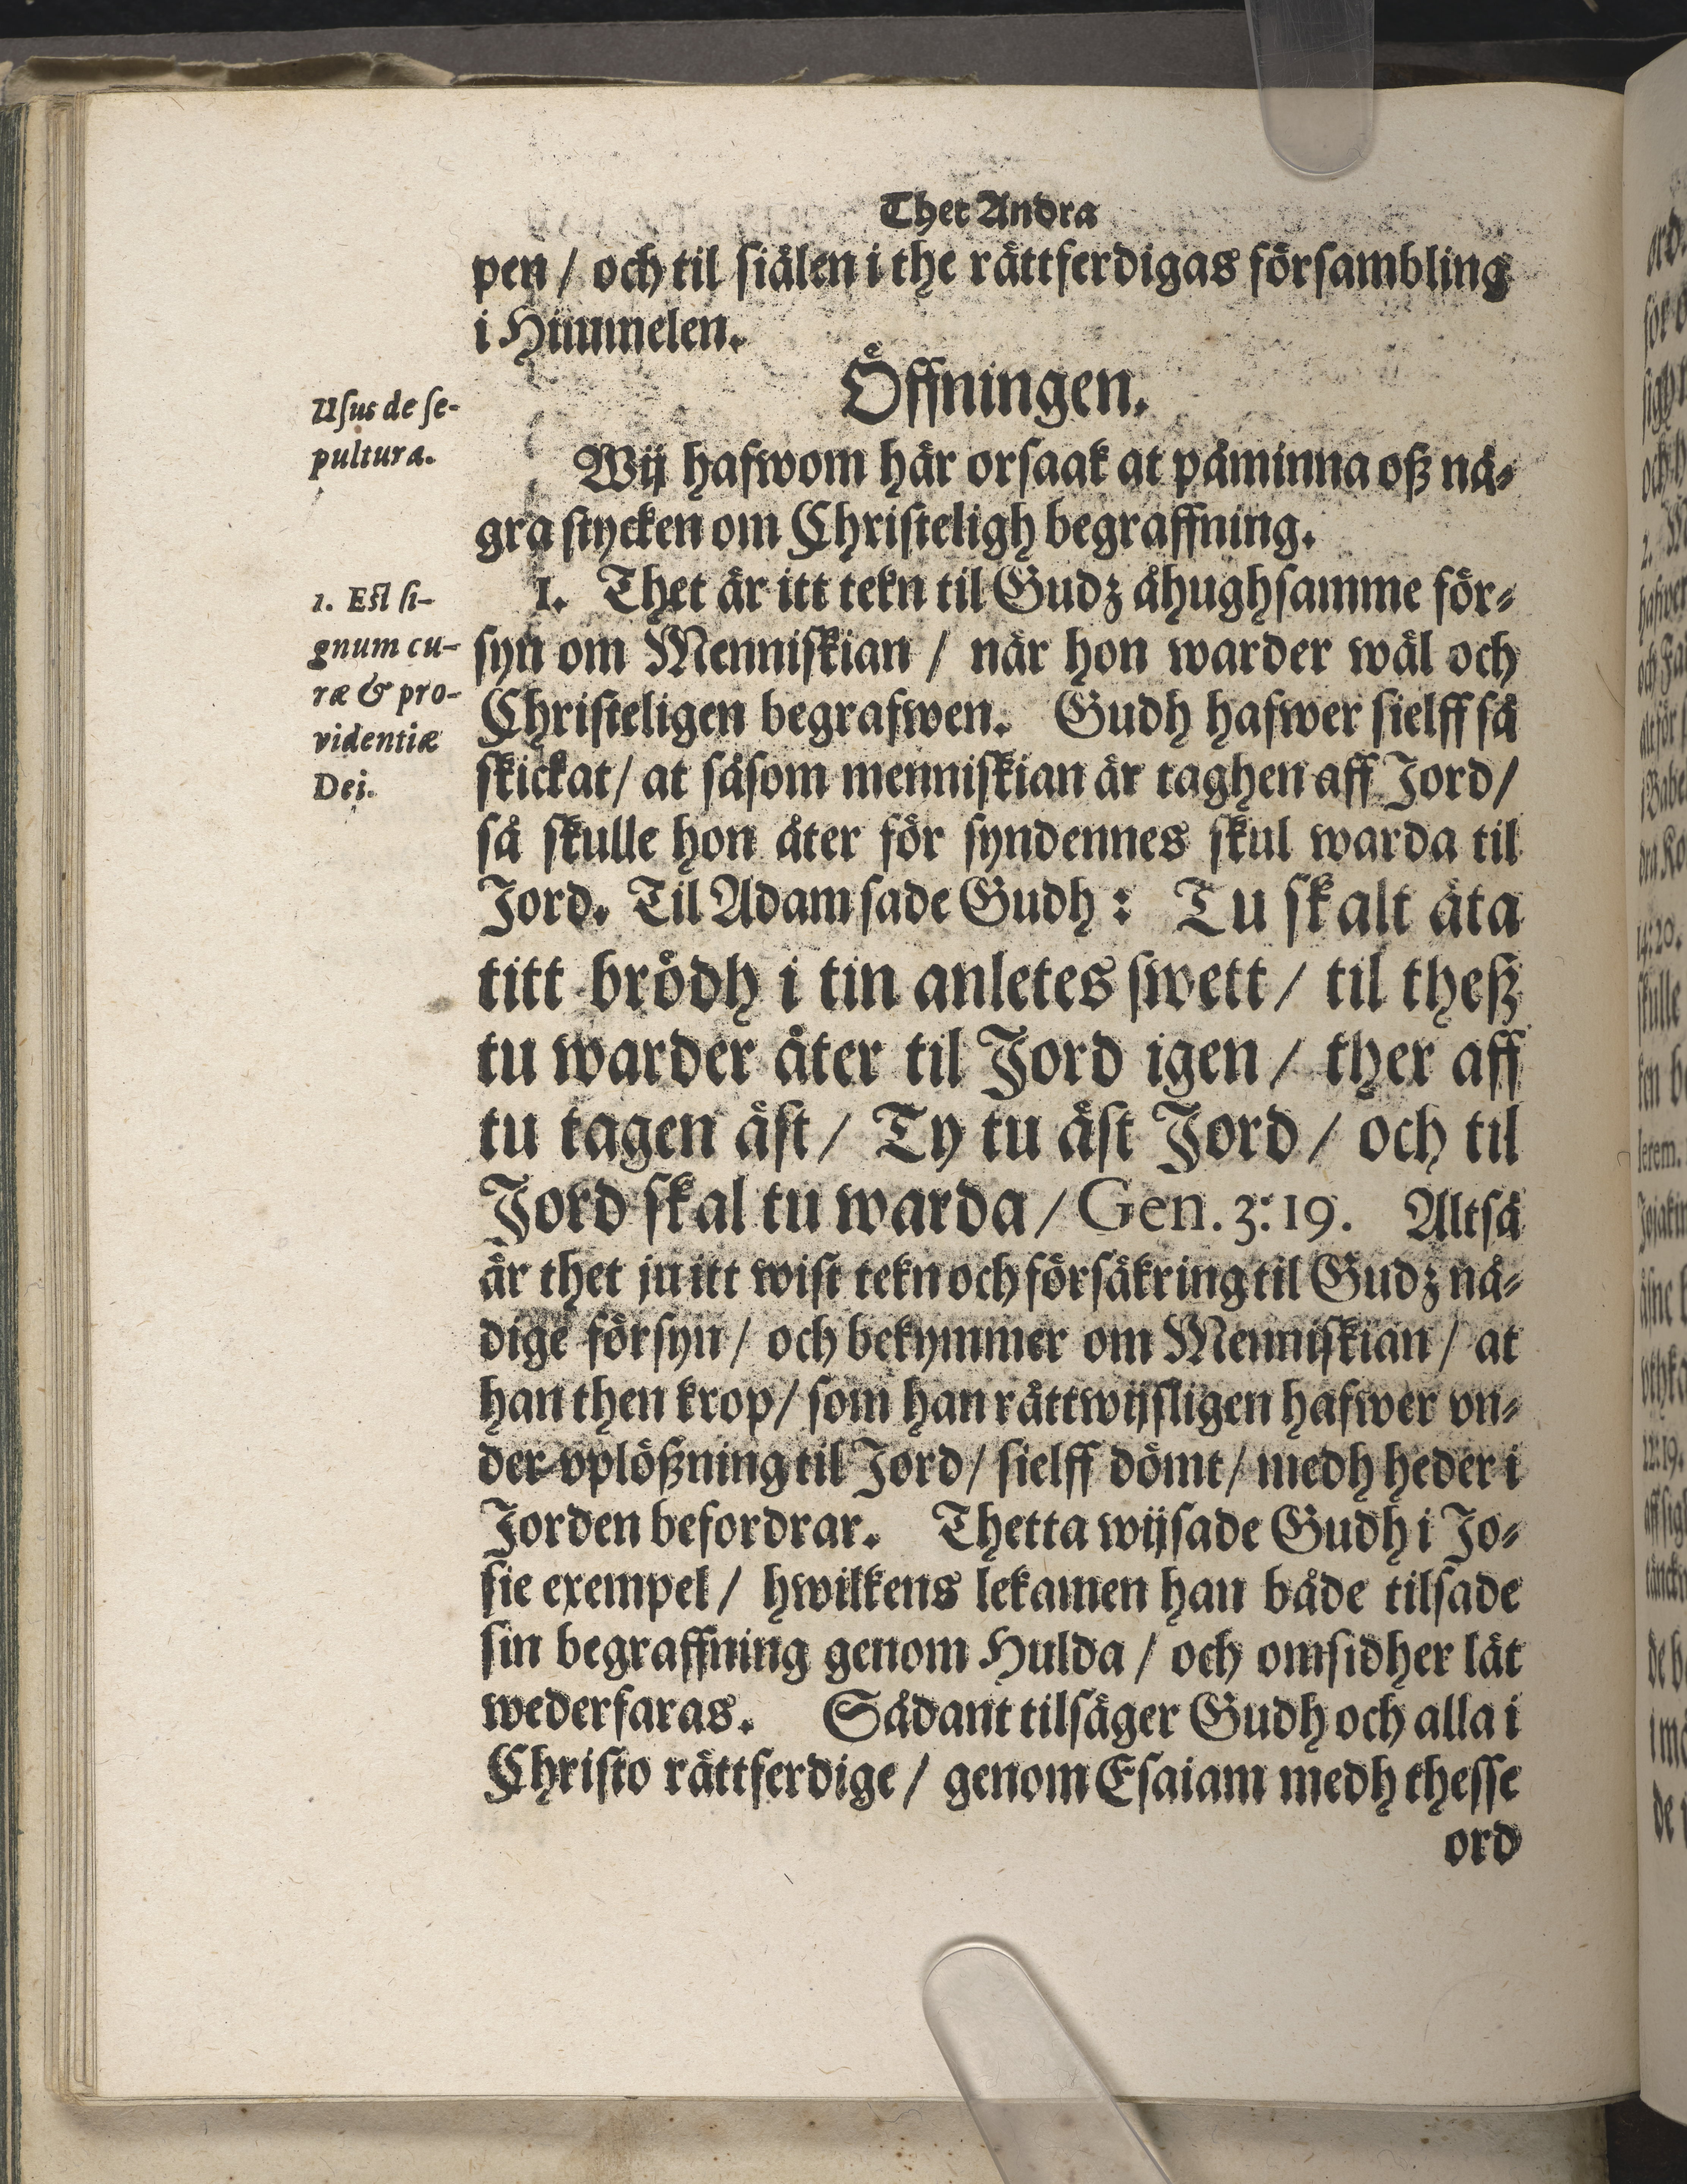 Thet Andra
pen / och til siälen i the rättferdigas försambling
i Himmelen.
Öffningen.
Usus de se-
pultura.
Wij hafwom här orsaak at påminna oß nå-
gra stycken om Christeligh begraffning.
1. Est si-
gnum cu-
ræ & pro-
videntiæ
Dei.
1. Thet är itt tekn til Gudz åhughsamme för-
syn om Menniskian / när hon warder wäl och
Christeligen begrafwen. Gudh hafwer sielff så
skickat / at såsom menniskian är taghen aff Jord /
så skulle hon åter för syndennes skul warda til
Jord. Til Adam sade Gudh: Tu skalt äta
titt brödh i tin anletes swett / til theß
tu warder åter til Jord igen / ther aff
tu tagen äst / Ty tu äst Jord / och til
Jord skal tu warda / Gen. 3:19. Altså
är thet ju itt wist tekn och försäkring til Gudz nå-
dige försyn / och bekymmer om Menniskian / at
han then krop / som han rättwijsligen hafwer vn-
der vplößning til Jord / sielff dömt / medh heder i
Jorden befordrar. Thetta wijsade Gudh i Jo-
sie exempel / hwilkens lekamen han både tilsade
sin begraffning genom Hulda / och omsidher lät
wederfaras. Sådant tilsäger Gudh och alla i
Christo rättferdige / genom Esaiam medh thesse
ord